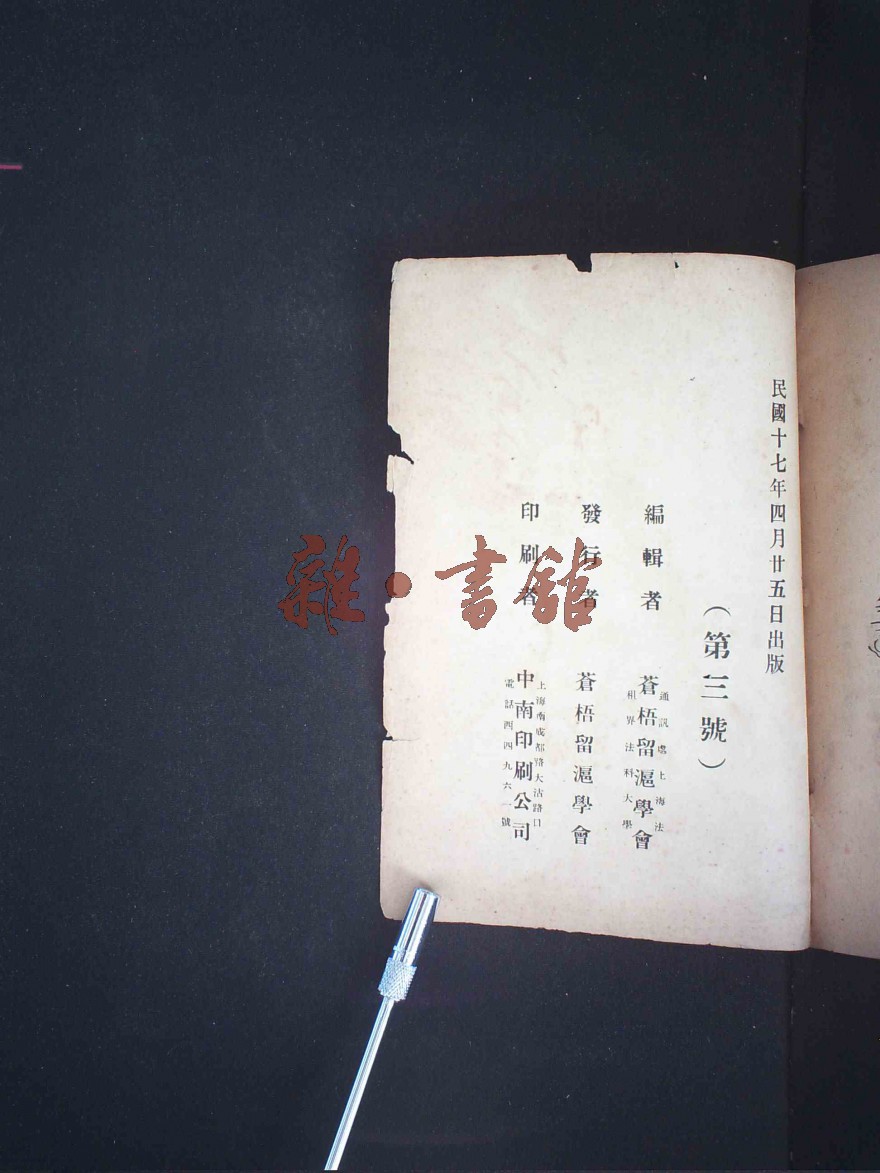 民國十七年四月廿五日出版
（第三號）
編輯者 蒼梧留滬學會
通訊處上海法
租界法科大學
發行者 蒼梧留滬學會
印刷者 中南印刷公司
上海南成都路大沽路口
電話四四九六一號
雜·書館